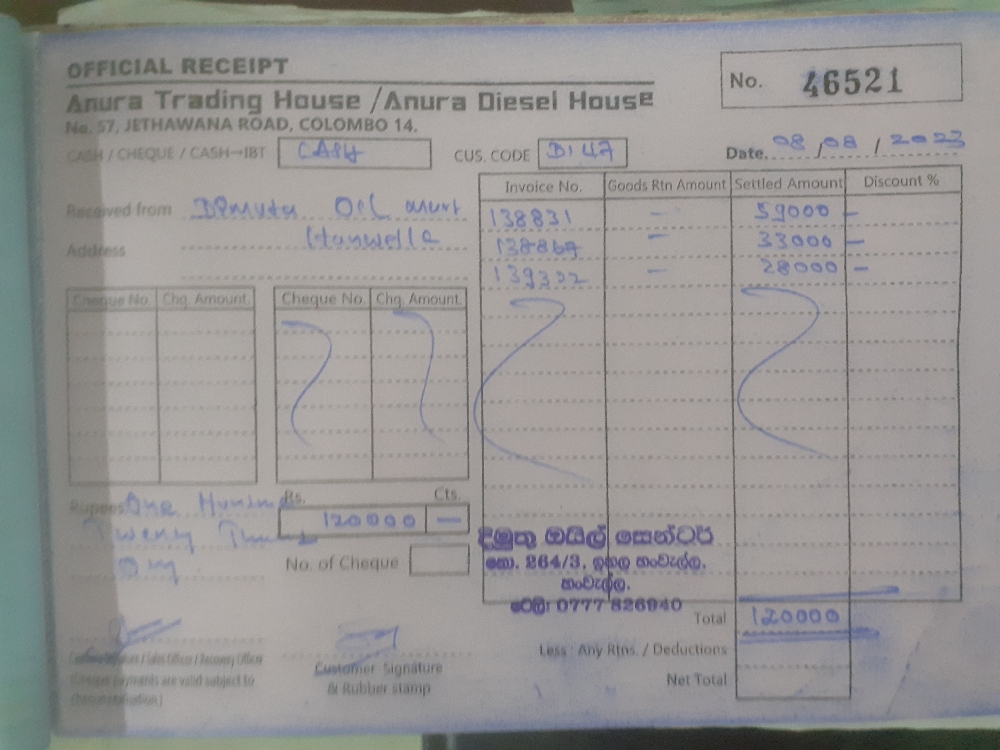 OFFICIAL RECEIPT
No. 46521
Anura Trading House / Anura Diesel House
No. 57, JETHAWANA ROAD, COLOMBO 14.
CASH / CHEQUE / CASH-IBT CASH CUS. CODE D147 Date. 08 / 08 / 2023
Invoice No. Goods Rtn Amount Settled Amount Discount %
Received from Oil
Address Hanwella
138831 — 59000 —
138869 — 33000 —
139302 — 28000 —
Cheque No. Chq. Amount. Cheque No. Chq. Amount.
Rupees One Rs. Cts.
120000 —
Twenty
No. of Cheque
දිමුතු ඔයිල් සෙන්ටර්
නො. 264/3, ඉහල හංවැල්ල,
හංවැල්ල.
ටෙලි: 0777 826940
Total 120000
Less : Any Rtns. / Deductions
Net Total
/ Sales Officer / Recovery Officer
(Cheque payments are valid subject to
Customer Signature
& Rubber stamp